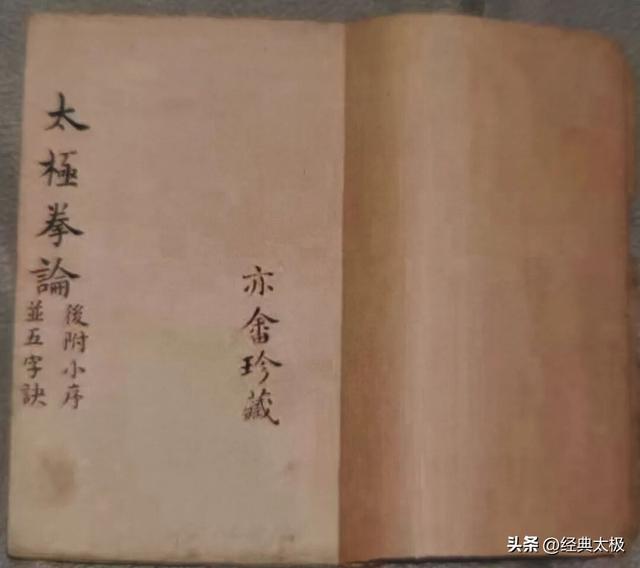 太極拳論
後附小序
並五字訣
亦畬珍藏
头条 @经典太极